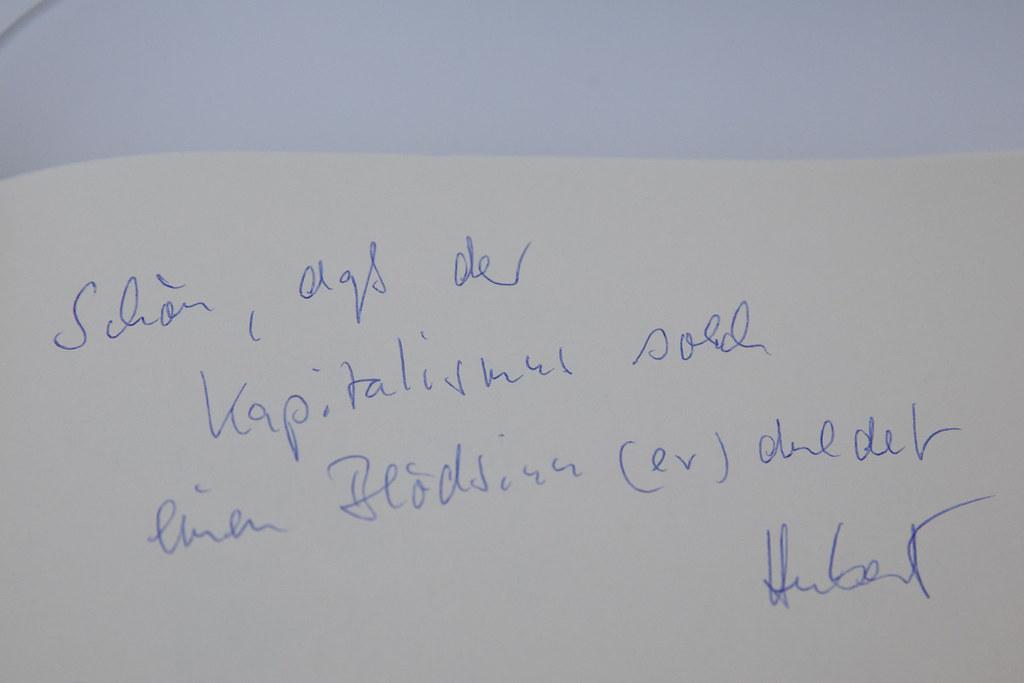 Schön, daß der
Kapitalismus solch
einen Blödsinn (er) duldet
Hubert